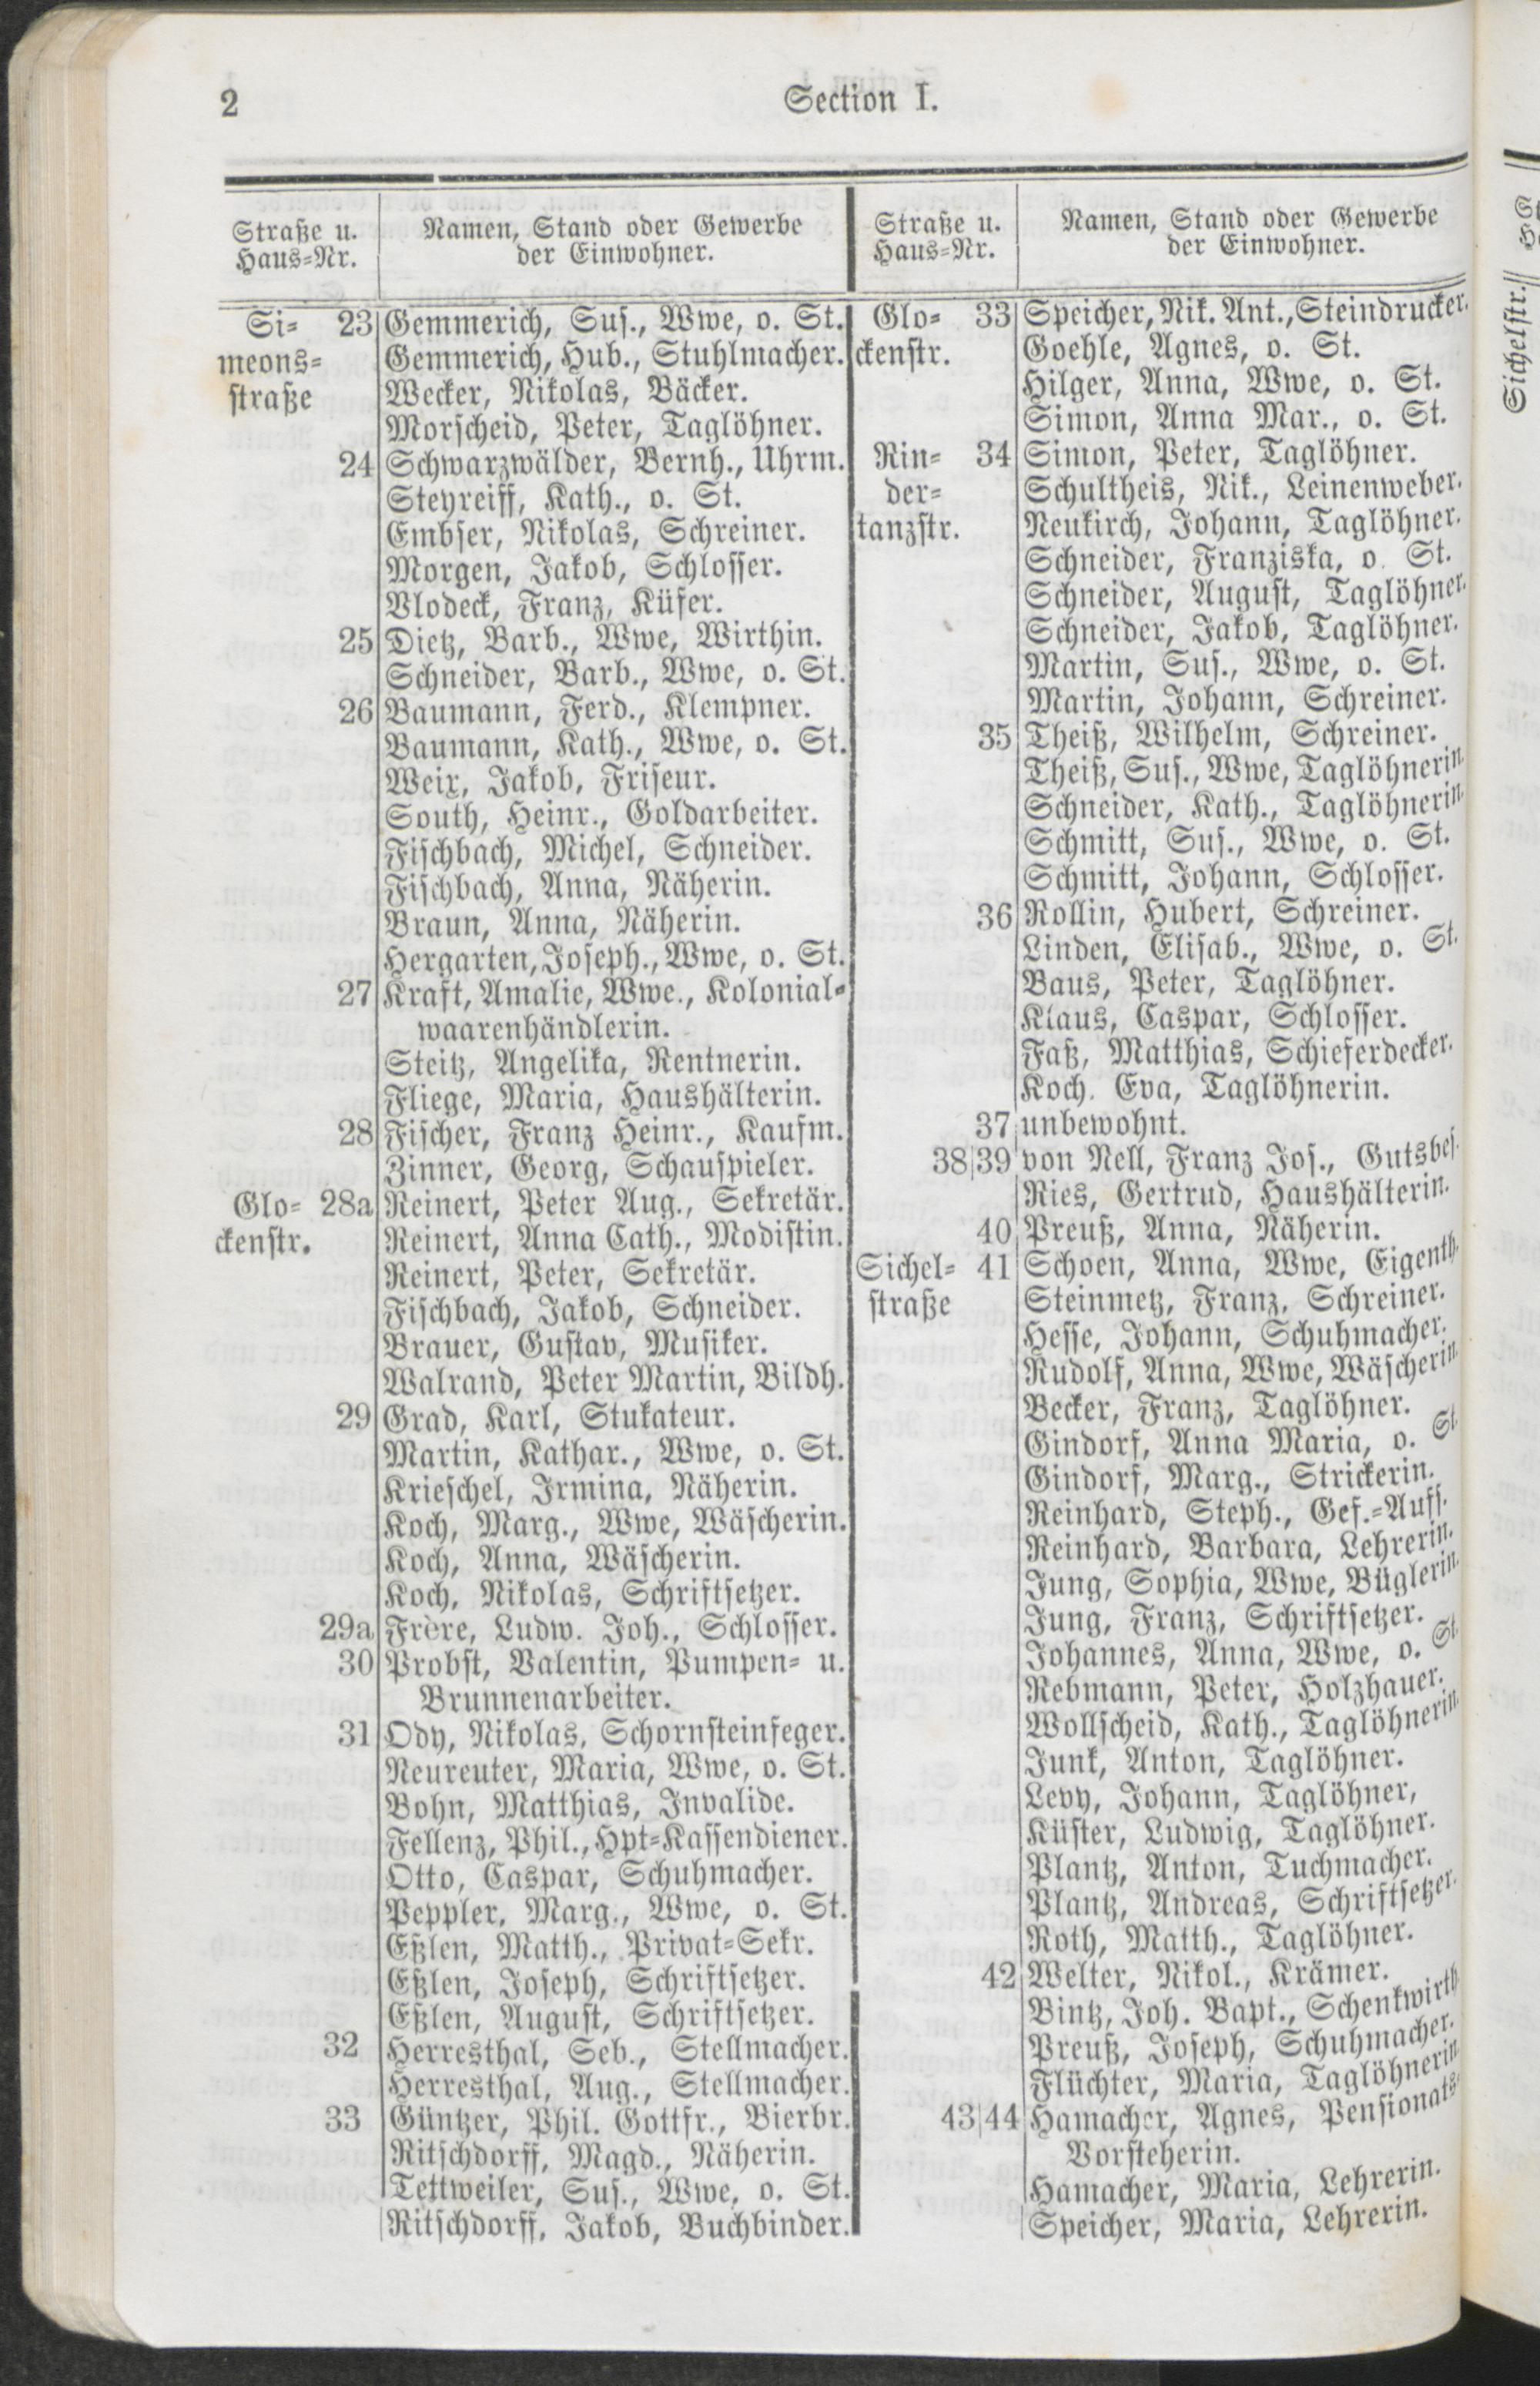 2
Section I.
Straße u. Haus=Nr.
Namen, Stand oder Gewerbe
der Einwohner.
Si= 23 Gemmerich, Sus., Wwe, o. St.
meons= Gemmerich, Hub., Stuhlmacher.
straße Wecker, Nikolas, Bäcker.
Morscheid, Peter, Taglöhner.
24 Schwarzwälder, Bernh., Uhrm.
Steyreiff, Kath., o. St.
Embser, Nikolas, Schreiner.
Morgen, Jakob, Schlosser.
Vlodeck, Franz, Küfer.
25 Dietz, Barb., Wwe, Wirthin.
Schneider, Barb., Wwe, o. St.
26 Baumann, Ferd., Klempner.
Baumann, Kath., Wwe, o. St.
Weix, Jakob, Friseur.
South, Heinr., Goldarbeiter.
Fischbach, Michel, Schneider.
Fischbach, Anna, Näherin.
Braun, Anna, Näherin.
Hergarten, Joseph., Wwe, o. St.
27 Kraft, Amalie, Wwe., Kolonial=
waarenhändlerin.
Steitz, Angelika, Rentnerin.
Fliege, Maria, Haushälterin.
28 Fischer, Franz Heinr., Kaufm.
Zinner, Georg, Schauspieler.
Glo= 28a Reinert, Peter Aug., Sekretär.
ckenstr. Reinert, Anna Cath., Modistin.
Reinert, Peter, Sekretär.
Fischbach, Jakob, Schneider.
Brauer, Gustav, Musiker.
Walrand, Peter Martin, Bildh.
29 Grad, Karl, Stukateur.
Martin, Kathar., Wwe, o. St.
Krieschel, Irmina, Näherin.
Koch, Marg., Wwe, Wäscherin.
Koch, Anna, Wäscherin.
Koch, Nikolas, Schriftsetzer.
29a Frère, Ludw. Joh., Schlosser.
30 Probst, Valentin, Pumpen= u.
Brunnenarbeiter.
31 Ody, Nikolas, Schornsteinfeger.
Neureuter, Maria, Wwe, o. St.
Bohn, Matthias, Invalide.
Fellenz, Phil., Hpt=Kassendiener.
Otto, Caspar, Schuhmacher.
Peppler, Marg., Wwe, o. St.
Eßlen, Matth., Privat=Sekr.
Eßlen, Joseph, Schriftsetzer.
Eßlen, August, Schriftsetzer.
32 Herresthal, Seb., Stellmacher.
Herresthal, Aug., Stellmacher.
33 Güntzer, Phil. Gottfr., Bierbr.
Ritschdorff, Magd., Näherin.
Tettweiler, Sus., Wwe, o. St.
Ritschdorff, Jakob, Buchbinder.
Straße u. Haus=Nr.
Namen, Stand oder Gewerbe
der Einwohner.
Glo= 33 Speicher, Nik. Ant., Steindrucker.
ckenstr. Goehle, Agnes, o. St.
Hilger, Anna, Wwe, o. St.
Simon, Anna Mar., o. St.
Rin= 34 Simon, Peter, Taglöhner.
der= Schultheis, Nik., Leinenweber.
tanzstr. Neukirch, Johann, Taglöhner.
Schneider, Franziska, o. St.
Schneider, August, Taglöhner.
Schneider, Jakob, Taglöhner.
Martin, Sus., Wwe, o. St.
Martin, Johann, Schreiner.
35 Theiß, Wilhelm, Schreiner.
Theiß, Sus., Wwe, Taglöhnerin.
Schneider, Kath., Taglöhnerin.
Schmitt, Sus., Wwe, o. St.
Schmitt, Johann, Schlosser.
36 Rollin, Hubert, Schreiner.
Linden, Elisab., Wwe, o. St.
Baus, Peter, Taglöhner.
Klaus, Caspar, Schlosser.
Faß, Matthias, Schieferdecker.
Koch. Eva, Taglöhnerin.
37 unbewohnt.
38|39 von Nell, Franz Jos., Gutsbes.
Ries, Gertrud, Haushälterin.
40 Preuß, Anna, Näherin.
Sichel= 41 Schoen, Anna, Wwe, Eigenth.
straße Steinmetz, Franz, Schreiner.
Hesse, Johann, Schuhmacher.
Rudolf, Anna, Wwe, Wäscherin.
Becker, Franz, Taglöhner.
Gindorf, Anna Maria, o. St.
Gindorf, Marg., Strickerin.
Reinhard, Steph., Gef.=Aufs.
Reinhard, Barbara, Lehrerin.
Jung, Sophia, Wwe, Büglerin.
Jung, Franz, Schriftsetzer.
Johannes, Anna, Wwe, o. St.
Rebmann, Peter, Holzhauer.
Wollscheid, Kath., Taglöhnerin.
Junk, Anton, Taglöhner.
Levy, Johann, Taglöhner,
Küster, Ludwig, Taglöhner.
Plantz, Anton, Tuchmacher.
Plantz, Andreas, Schriftsetzer.
Roth, Matth., Taglöhner.
42 Welter, Nikol., Krämer.
Bintz, Joh. Bapt., Schenkwirth
Preuß, Joseph, Schuhmacher.
Flüchter, Maria, Taglöhnerin
43|44 Hamacher, Agnes, Pensionats=
Vorsteherin.
Hamacher, Maria, Lehrerin.
Speicher, Maria, Lehrerin.
Sichelstr.